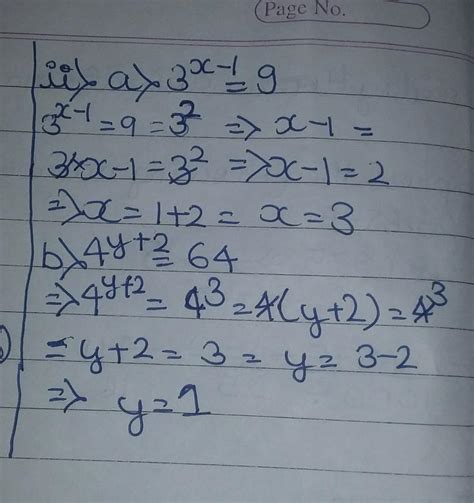 Page No.
ii> a> 3^{x-1} = 9
3^{x-1} = 9 = 3^2 => x-1 =
3 x-1 = 3^2 => x-1 = 2
=> x = 1+2 = x = 3
b> 4^{y+2} = 64
=> 4^{y+2} = 4^3 = 4(y+2) = 4^3
= y+2 = 3 = y = 3-2
=> y = 1